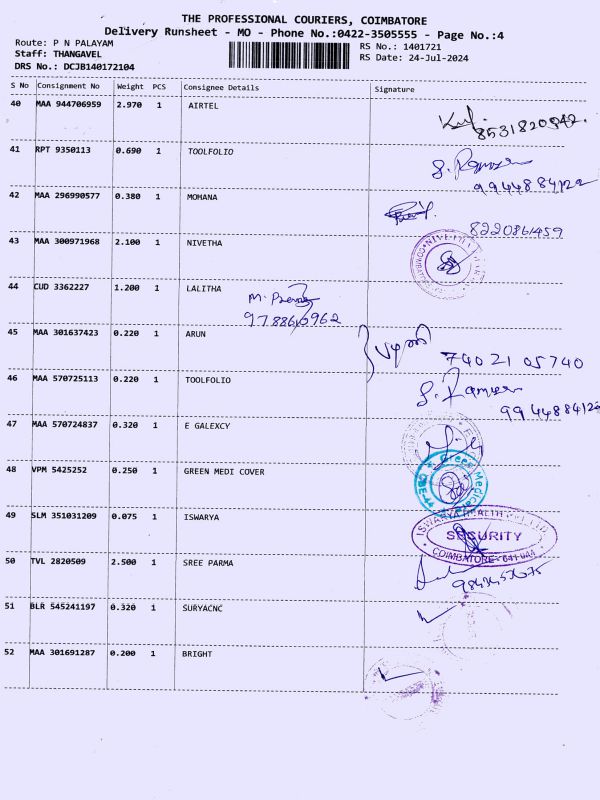 THE PROFESSIONAL COURIERS, COIMBATORE
Delivery Runsheet - MO - Phone No.:0422-3505555 - Page No.:4
Route: P N PALAYAM
RS No.: 1401721
Staff: THANGAVEL
RS Date: 24-Jul-2024
DRS No.: DCJB140172104
S No Consignment No Weight PCS Consignee Details Signature
40 MAA 944706959 2.970 1 AIRTEL
8531820842.
41 RPT 9350113 0.690 1 TOOLFOLIO
9944884122
42 MAA 296990577 0.380 1 MOHANA
8220861459
43 MAA 300971968 2.100 1 NIVETHA
44 CUD 3362227 1.200 1 LALITHA
45 MAA 301637423 0.220 1 ARUN
74021 05740
46 MAA 570725113 0.220 1 TOOLFOLIO
9944884122
47 MAA 570724837 0.320 1 E GALEXCY
48 VPM 5425252 0.250 1 GREEN MEDI COVER
Green Medi
CBE-44
49 SLM 351031209 0.075 1 ISWARYA
ISWARYA HEALTH PVT LTD
SECURITY
COIMBATORE - 641 044
50 TVL 2820509 2.500 1 SREE PARMA
51 BLR 545241197 0.320 1 SURYACNC
52 MAA 301691287 0.200 1 BRIGHT